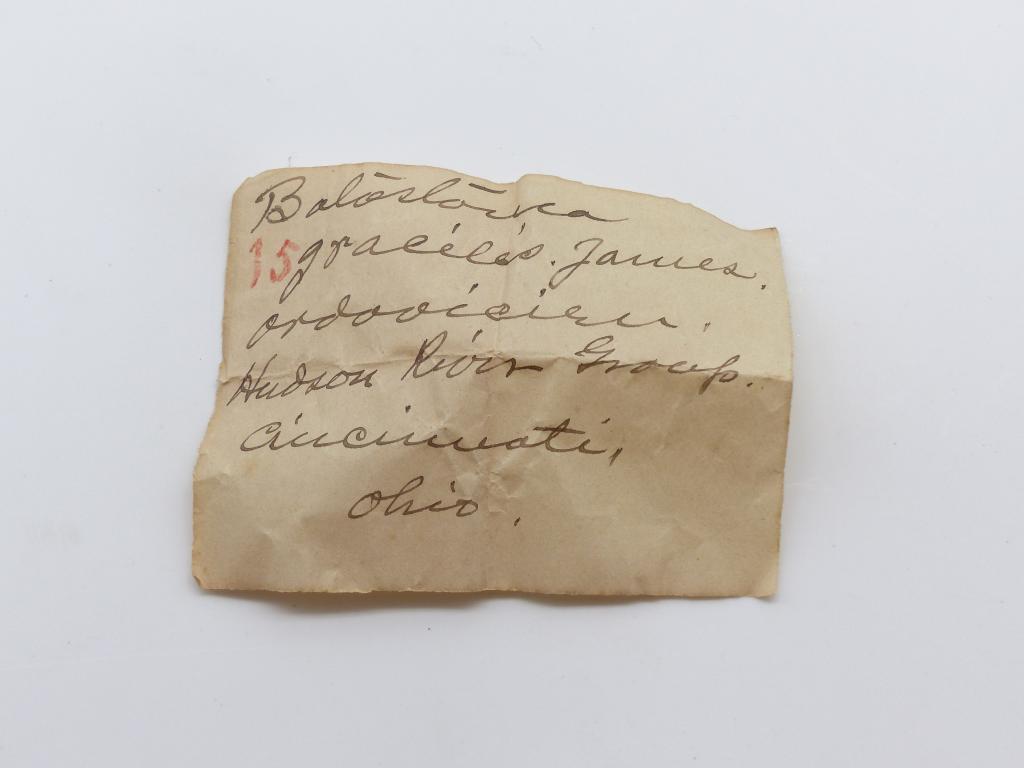 Batostoma
15 gracilis. James.
ordovicien.
Hudson River Group.
Cincinnati,
Ohio.